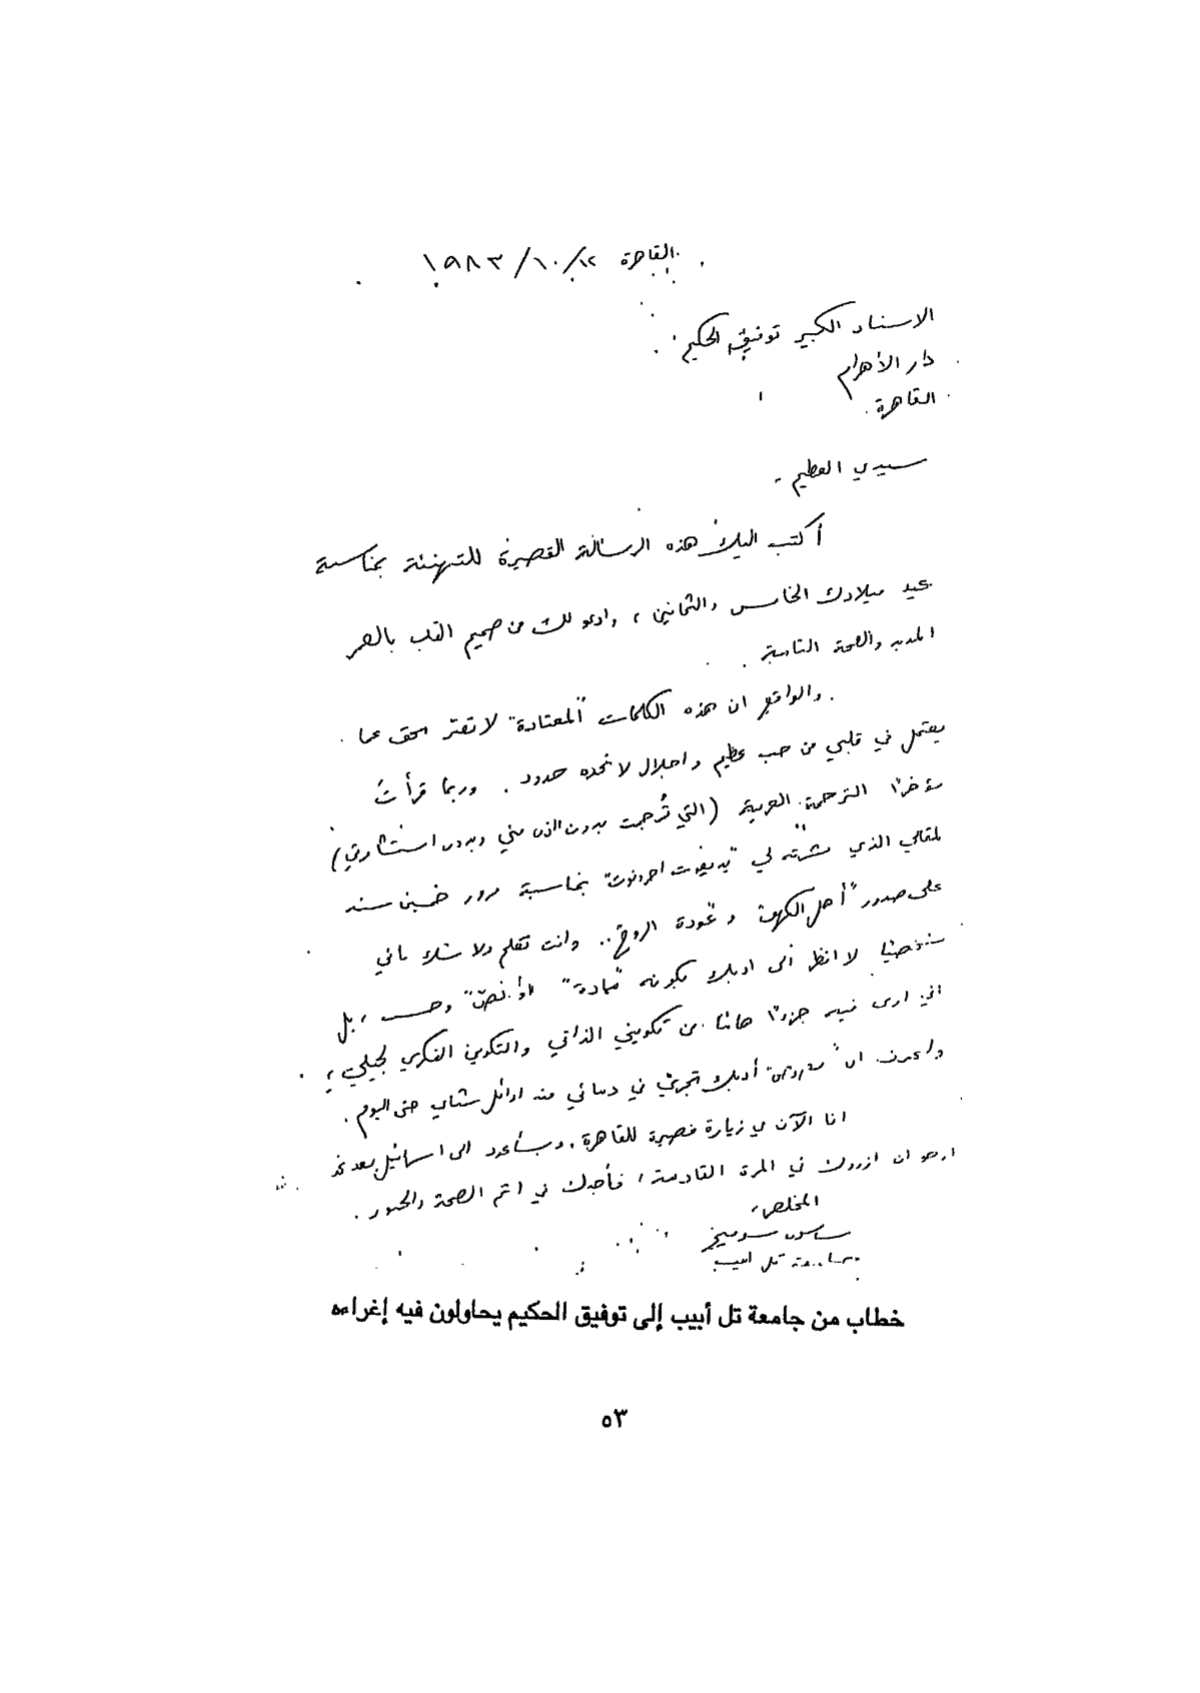 القاهرة ١٢/١٠/١٩٨٣
الاستاذ الكبير توفيق الحكيم
دار الأهرام
القاهرة.
سيدي العظيم -
أكتب اليك هذه الرسالة القصيرة للتهنئة بمناسبة
عيد ميلادك الخامس والثمانين ، وادعو لك من صميم القلب بالعمر
المديد والصحة التامة .
والواقع ان هذه الكلمات "المعتادة" لا تعبّر بحق عما
يعتمل في قلبي من حب عظيم واجلال لا تحده حدود . وربما قرأتَ
مؤخرًا الترجمة العربية (التي تُرجمت بدون اذن مني وبدون استشارتي)
لمقالي الذي نشرته لي "يديعوت احرونوت" بمناسبة مرور خمسين سنة
على صدور "أهل الكهف" و "عودة الروح" .. وانت تعلم ولا شك بأني
شخصيًا لا انظر الى ادبك بكونه "مادة" أو "نصّ" وحسب ، بل
اني ارى فيه جزءًا هامًا من تكويني الذاتي والتكوين الفكري لجيلي ،
واعرف ان أدبك تجري في دمائي منذ اوائل شبابي حتى اليوم .
انا الآن في زيارة قصيرة للقاهرة ، وسأعود الى اسرائيل بعد غد
ارجو ان ازورك في المرة القادمة ، فأجدك في اتم الصحة والحبور .
المخلص ،
ساسون سوميخ
جامعة تل ابيب
خطاب من جامعة تل أبيب إلى توفيق الحكيم يحاولون فيه إغراءه
٥٣